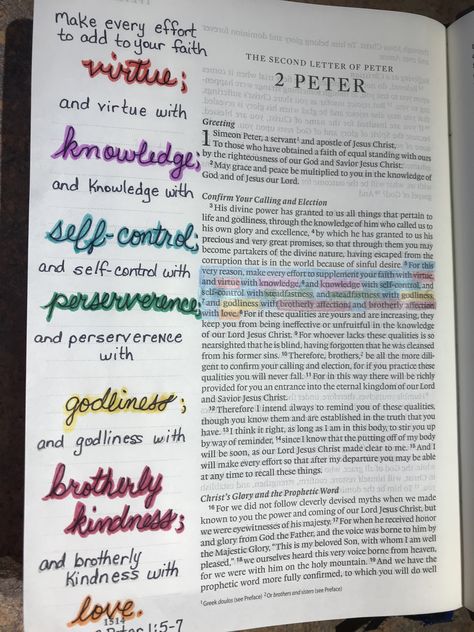 Make every effort
to add to your faith
virtue;
and virtue with
knowledge;
and knowledge with
self-control;
and self-control with
perserverence;
and perserverence
with
godliness;
and godliness with
brotherly
kindness;
and brotherly
kindness with
love.
1514
1:5-7
THE SECOND LETTER OF PETER
2 PETER
Greeting
1 Simeon Peter, a servant¹ and apostle of Jesus Christ,
To those who have obtained a faith of equal standing with ours
by the righteousness of our God and Savior Jesus Christ:
² May grace and peace be multiplied to you in the knowledge of
God and of Jesus our Lord.
Confirm Your Calling and Election
³ His divine power has granted to us all things that pertain to
life and godliness, through the knowledge of him who called us to
his own glory and excellence, ⁴ by which he has granted to us his
precious and very great promises, so that through them you may
become partakers of the divine nature, having escaped from the
corruption that is in the world because of sinful desire. ⁵ For this
very reason, make every effort to supplement your faith with virtue,
and virtue with knowledge, ⁶ and knowledge with self-control, and
self-control with steadfastness, and steadfastness with godliness,
⁷ and godliness with brotherly affection, and brotherly affection
with love. ⁸ For if these qualities are yours and are increasing, they
keep you from being ineffective or unfruitful in the knowledge
of our Lord Jesus Christ. ⁹ For whoever lacks these qualities is so
nearsighted that he is blind, having forgotten that he was cleansed
from his former sins. ¹⁰ Therefore, brothers,² be all the more dili-
gent to confirm your calling and election, for if you practice these
qualities you will never fall. ¹¹ For in this way there will be richly
provided for you an entrance into the eternal kingdom of our Lord
and Savior Jesus Christ.
¹² Therefore I intend always to remind you of these qualities,
though you know them and are established in the truth that you
have. ¹³ I think it right, as long as I am in this body, to stir you up
by way of reminder, ¹⁴ since I know that the putting off of my body
will be soon, as our Lord Jesus Christ made clear to me. ¹⁵ And I
will make every effort so that after my departure you may be able
at any time to recall these things.
Christ's Glory and the Prophetic Word
¹⁶ For we did not follow cleverly devised myths when we made
known to you the power and coming of our Lord Jesus Christ, but
we were eyewitnesses of his majesty. ¹⁷ For when he received honor
and glory from God the Father, and the voice was borne to him by
the Majestic Glory, "This is my beloved Son, with whom I am well
pleased," ¹⁸ we ourselves heard this very voice borne from heaven,
for we were with him on the holy mountain. ¹⁹ And we have the
prophetic word more fully confirmed, to which you will do well
¹ Greek doulos (see Preface) ² Or brothers and sisters (see Preface)